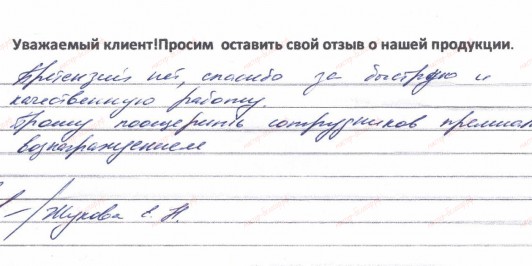 Уважаемый клиент!Просим оставить свой отзыв о нашей продукции.
Претензий нет, спасибо за быструю и
качественную работу.
Прошу поощерить сотрудников
вознаграждением
Жукова Е. Н.